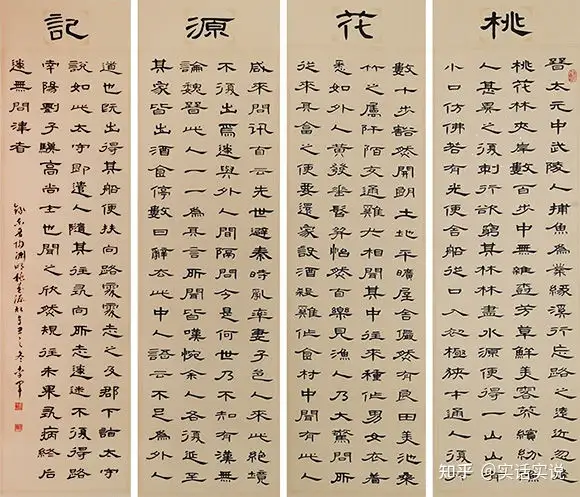 桃花源記
晉太元中武陵人捕魚為業緣溪行忘路之遠近忽逢
桃花林夾岸數百步中無雜樹芳草鮮美落英繽紛漁
人甚異之復前行欲窮其林林盡水源便得一山山有
小口仿佛若有光便舍船從口入初極狹才通人復行
數十步豁然開朗土地平曠屋舍儼然有良田美池桑
竹之屬阡陌交通雞犬相聞其中往來種作男女衣著
悉如外人黃發垂髫並怡然自樂見漁人乃大驚問所
從來具答之便要還家設酒殺雞作食村中聞有此人
咸來問訊自云先世避秦時亂率妻子邑人來此絕境
不復出焉遂與外人間隔問今是何世乃不知有漢無
論魏晉此人一一為具言所聞皆嘆惋余人各復延至
其家皆出酒食停數日辭去此中人語云不足為外人
道也既出得其船便扶向路處處志之及郡下詣太守
說如此太守即遣人隨其往尋向所志遂迷不復得路
南陽劉子驥高尚士也聞之欣然規往未果尋病終後
遂無問津者
錄東晉陶淵明桃花源記
知乎 @实话实说